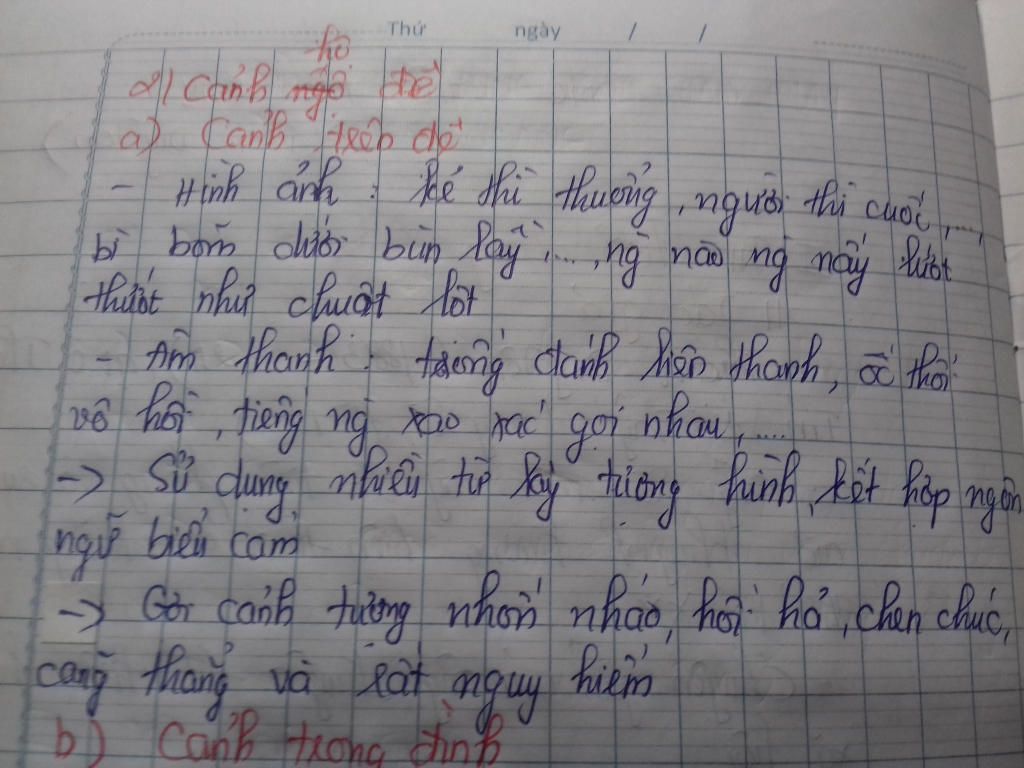 Thứ ngày / /
hộ
2) Cảnh ngộ đê
a) Cảnh trên đê
- Hình ảnh : kẻ thì thuổng, người thì cuốc,...,
bì bõm dưới bùn lầy,..., ng nào ng nấy lướt
thướt như chuột lột
- Âm thanh : trống đánh liên thanh, ốc thổi
vô hồi, tiếng ng xao xác gọi nhau,....
-> Sử dụng nhiều từ láy tượng hình, kết hợp ngôn
ngữ biểu cảm
-> Gợi cảnh tượng nhốn nháo, hối hả, chen chúc,
căng thẳng và rất nguy hiểm
b) Cảnh trong đình